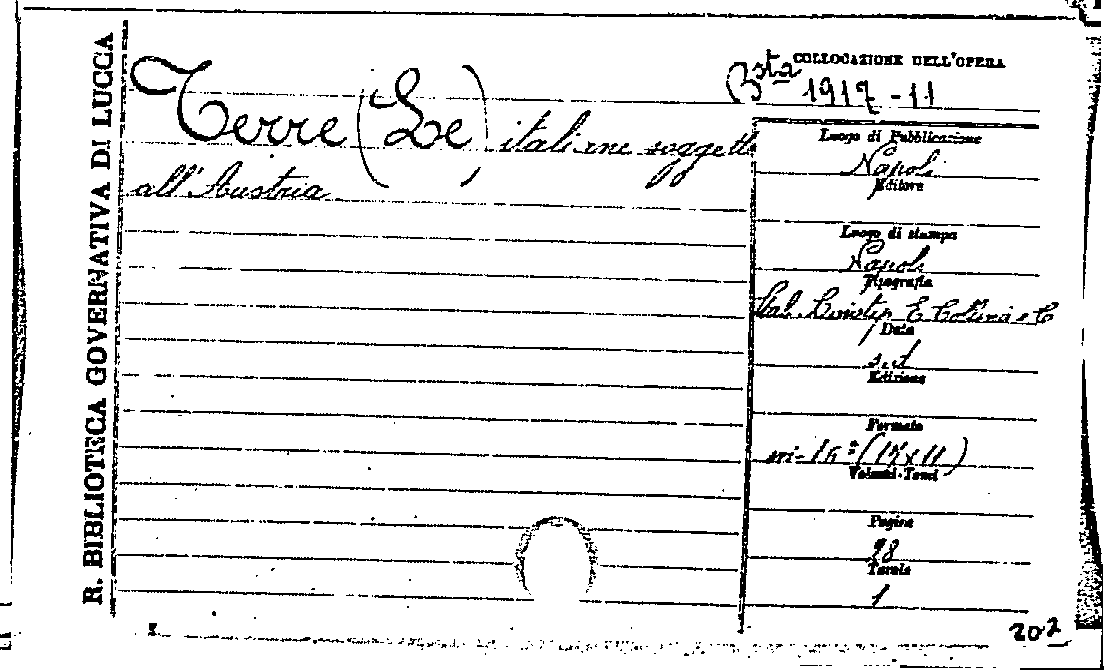 R. BIBLIOTECA GOVERNATIVA DI LUCCA
Terre (Le) italiane soggette
all'Austria
COLLOCAZIONE DELL'OPERA
Bsta 1917 - 11
Luogo di Pubblicazione
Napoli
Editore
Luogo di stampa
Napoli
Tipografia
Stab. E. C
Data
s.d
Edizione
Formato
in-16° (17x11)
Volumi-Tomi
Pagine
28
Tavole
1
202